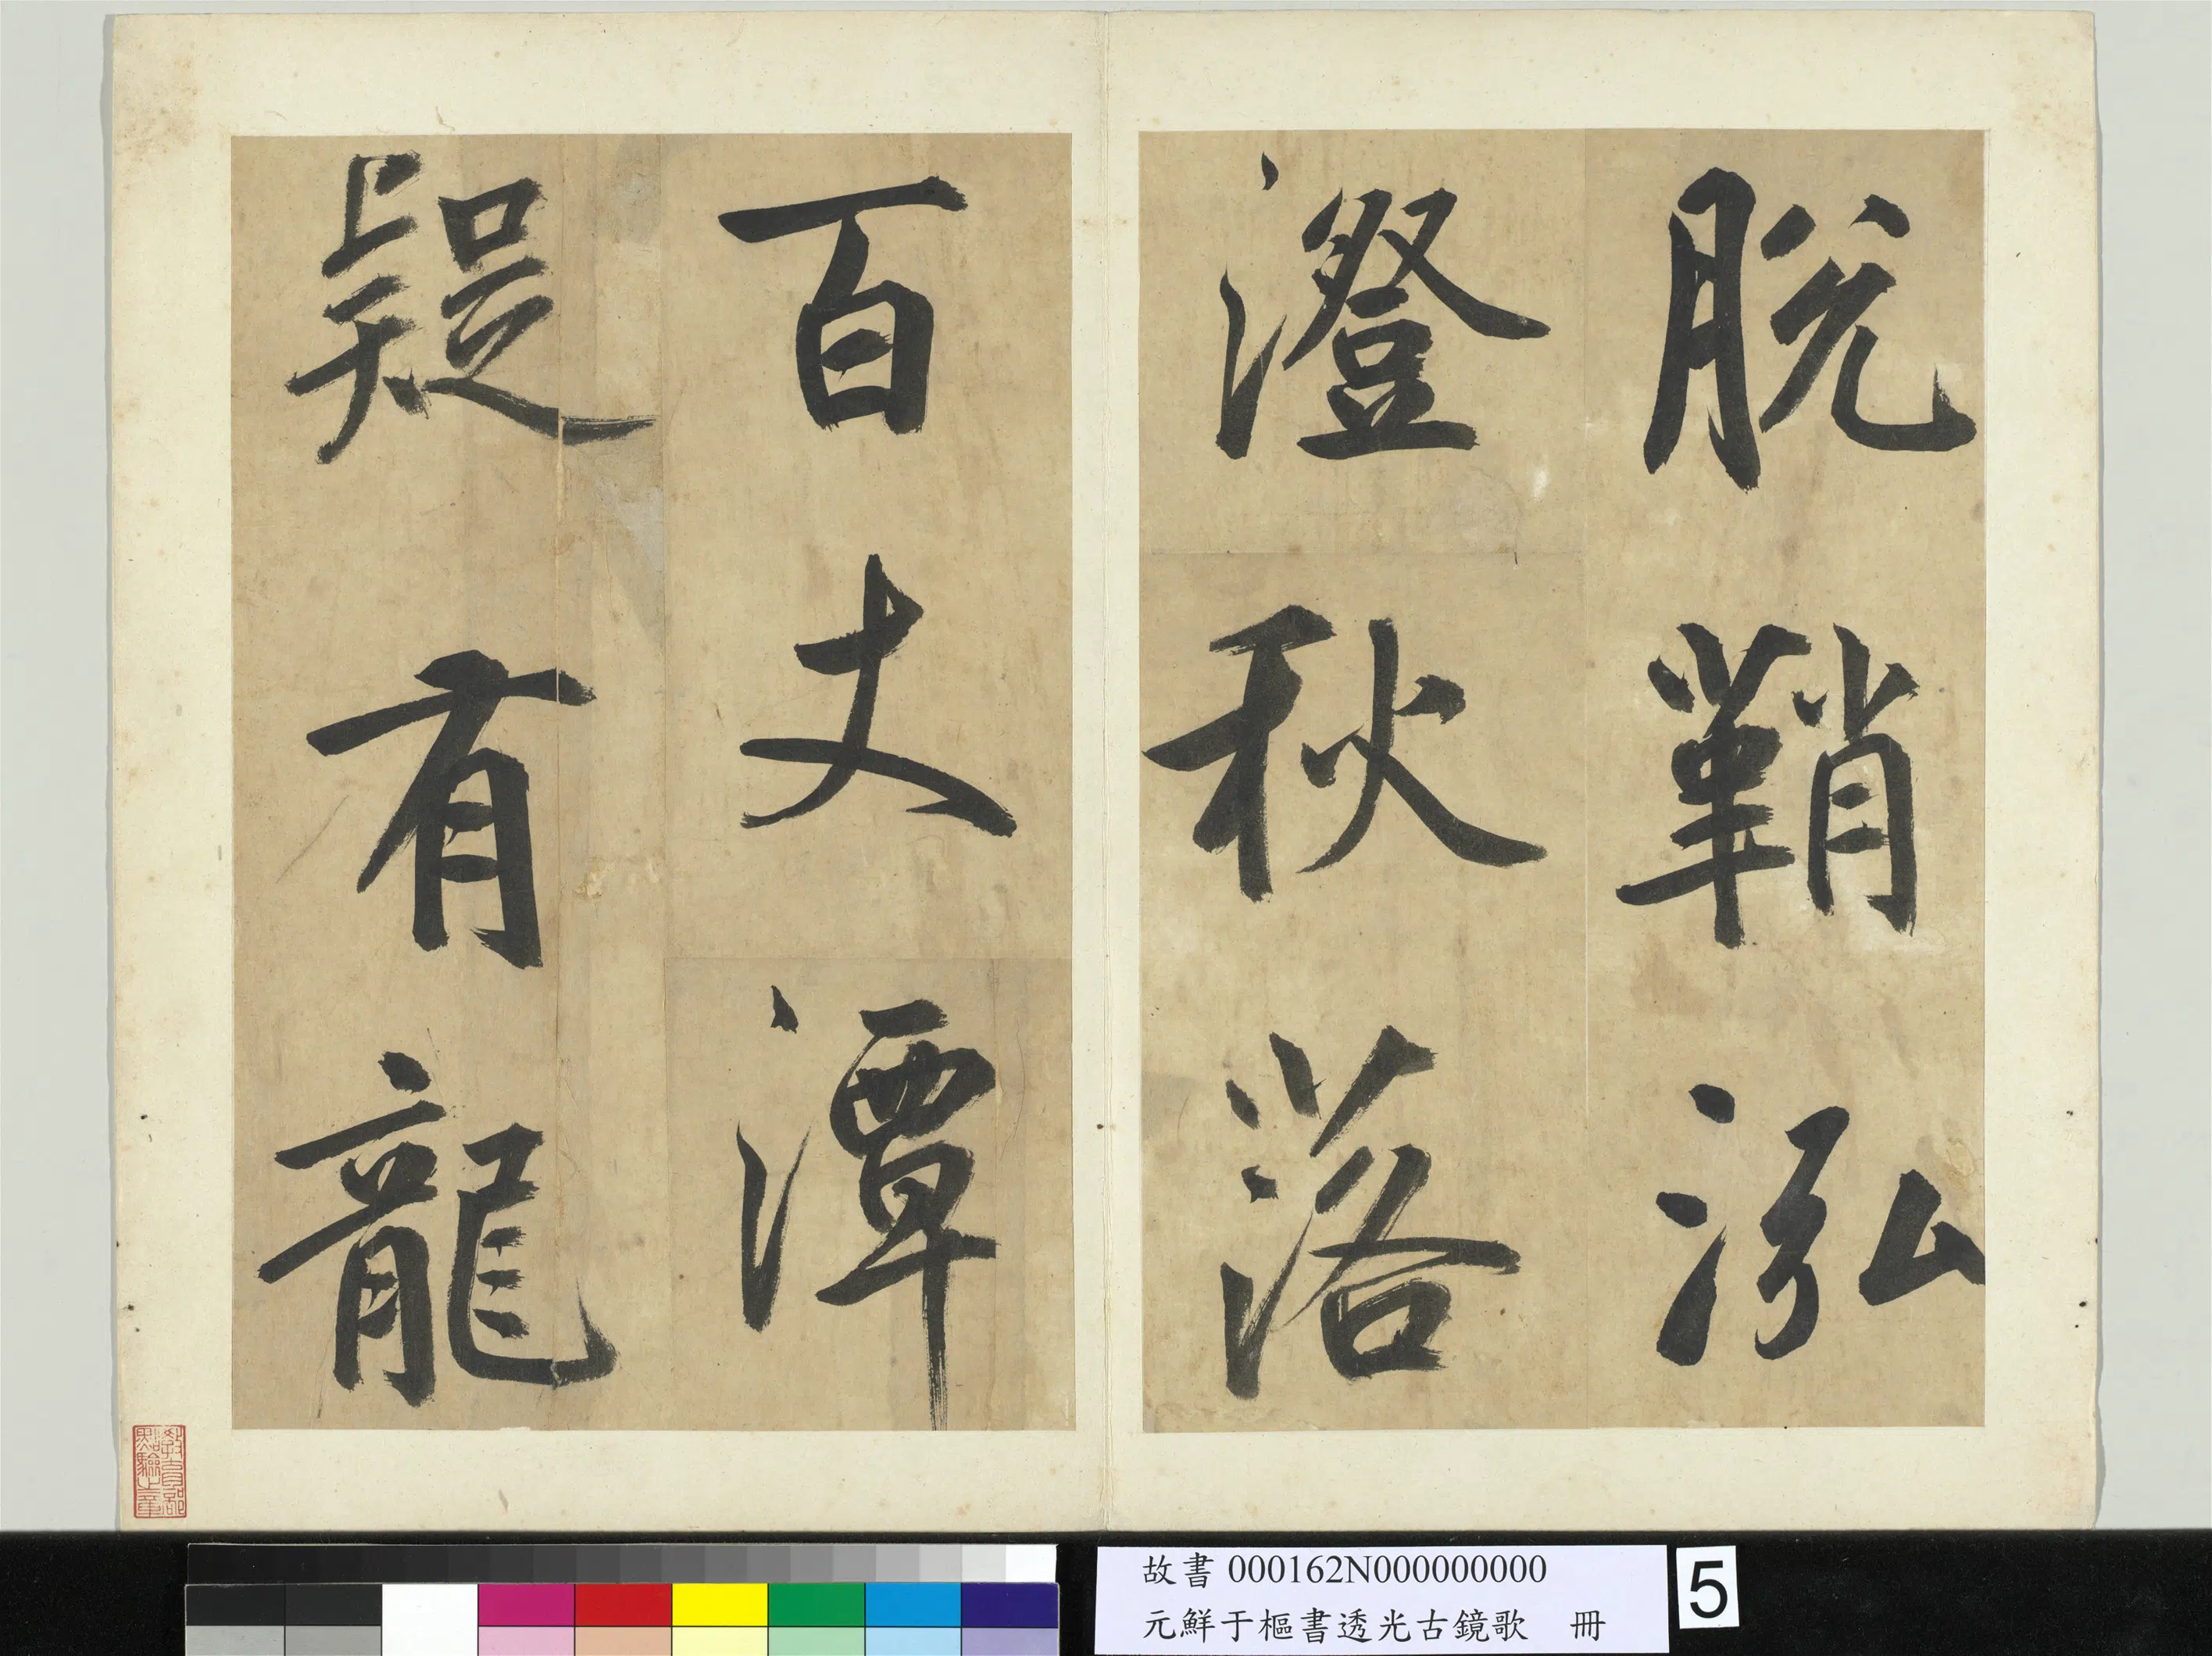 脱鞘泓
澄秋落
百丈潭
疑有龍
教育部點驗之章
故書 000162N000000000
元鮮于樞書透光古鏡歌 冊
5